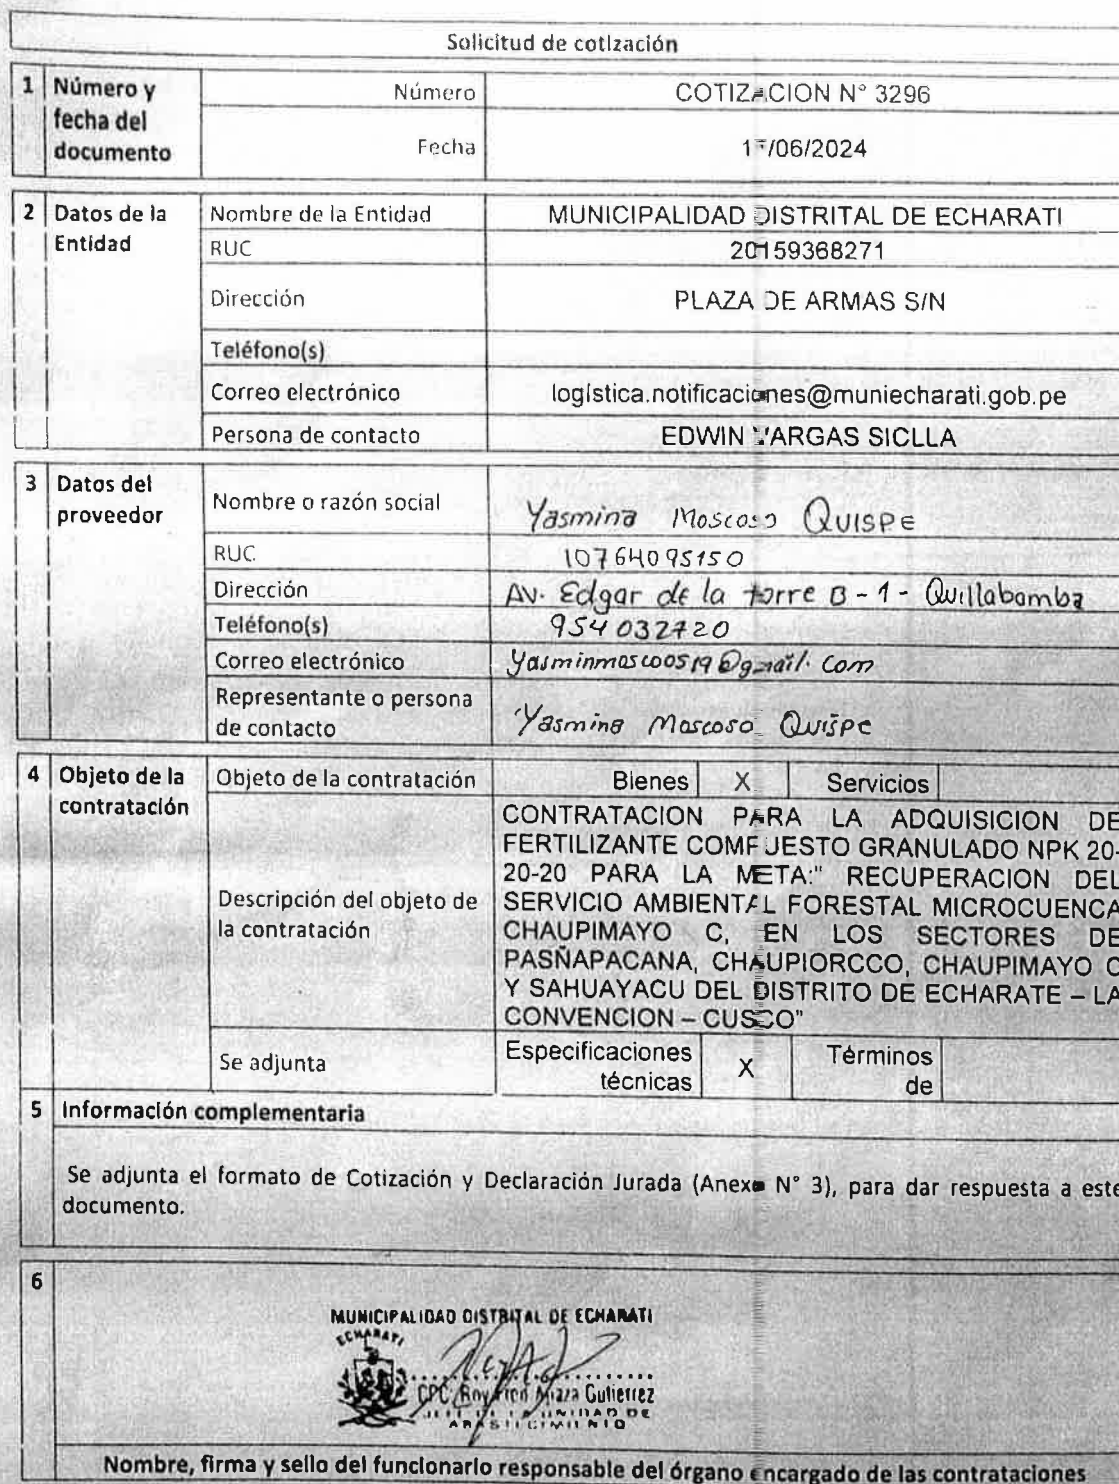 Solicitud de cotización
1 Número y fecha del documento
Número COTIZACION N° 3296
Fecha /06/2024
2 Datos de la Entidad
Nombre de la Entidad MUNICIPALIDAD DISTRITAL DE ECHARATI
RUC 20159368271
Dirección PLAZA DE ARMAS S/N
Teléfono(s)
Correo electrónico logística.notificaciones@muniecharati.gob.pe
Persona de contacto EDWIN VARGAS SICLLA
3 Datos del proveedor
Nombre o razón social Yasmina Moscoso Quispe
RUC 10764095150
Dirección Av. Edgar de la torre B-1- Quillabamba
Teléfono(s) 954032720
Correo electrónico yasminmoscoso519@gmail.com
Representante o persona
de contacto Yasmina Moscoso Quispe
4 Objeto de la contratación
Objeto de la contratación Bienes X Servicios
Descripción del objeto de
la contratación
CONTRATACION PARA LA ADQUISICION DE
FERTILIZANTE COMPUESTO GRANULADO NPK 20-
20-20 PARA LA META:" RECUPERACION DEL
SERVICIO AMBIENTAL FORESTAL MICROCUENCA
CHAUPIMAYO C, EN LOS SECTORES DE
PASÑAPACANA, CHAUPIORCCO, CHAUPIMAYO C
Y SAHUAYACU DEL DISTRITO DE ECHARATE – LA
CONVENCION – CUSCO"
Se adjunta Especificaciones técnicas X Términos de
5 Información complementaria
Se adjunta el formato de Cotización y Declaración Jurada (Anexo N° 3), para dar respuesta a este
documento.
6
MUNICIPALIDAD DISTRITAL DE ECHARATI
ECHARATI
CPC. Roy Gutierrez
JEFE DE LA UNIDAD DE
ABASTECIMIENTO
Nombre, firma y sello del funcionario responsable del órgano encargado de las contrataciones